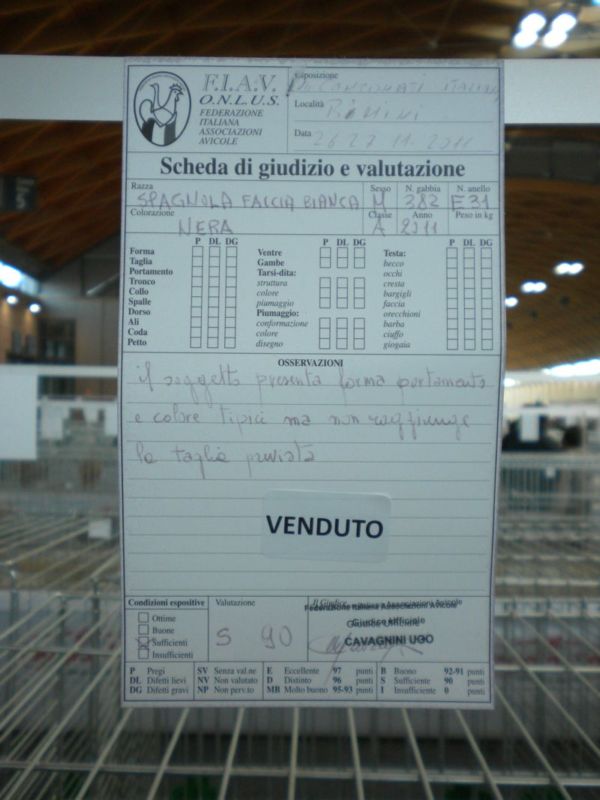 F.I.A.V.
O.N.L.U.S.
FEDERAZIONE
ITALIANA
ASSOCIAZIONI
AVICOLE
Esposizione
ITALIANI
Località RIMINI
Data 26 27 11 2011
Scheda di giudizio e valutazione
Razza Sesso N. gabbia N. anello
SPAGNOLA FACCIA BIANCA M 382 E31
Colorazione Classe Anno Peso in kg
NERA A 2011
P DL DG P DL DG P DL DG
Forma Ventre Testa:
Taglia Gambe becco
Portamento Tarsi-dita: occhi
Tronco struttura cresta
Collo colore bargigli
Spalle piumaggio faccia
Dorso Piumaggio: orecchioni
Ali conformazione barba
Coda colore ciuffo
Petto disegno giogaia
OSSERVAZIONI
il soggetto presenta forma portamento
e colore tipici ma non raggiunge
la taglia prevista
VENDUTO
Condizioni espositive Valutazione Il Giudice
Federazione Italiana Associazioni Avicole
Ottime
Buone Giudice Ufficiale
Sufficienti S 90 CAVAGNINI UGO
Insufficienti
P Pregi SV Senza val.ne E Eccellente 97 punti B Buono 92-91 punti
DL Difetti lievi NV Non valutato D Distinto 96 punti S Sufficiente 90 punti
DG Difetti gravi NP Non perv.to MB Molto buono 95-93 punti I Insufficiente 0 punti